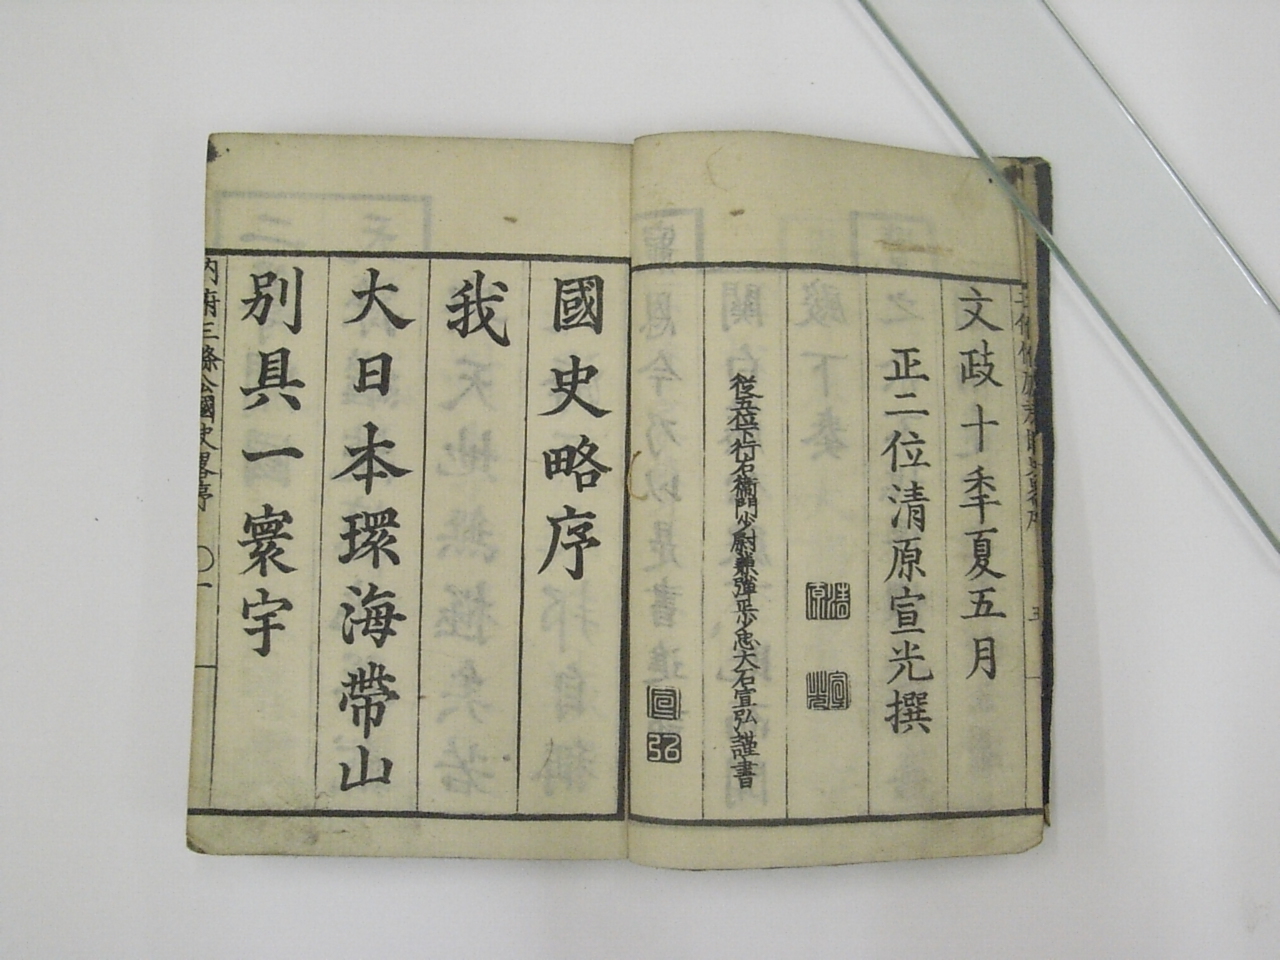 文政十季夏五月
正二位清原宣光撰
清原
宣光
從五位下行右衞門少尉兼彈正少忠大石宣弘謹書
宣弘
國史略序
我
大日本環海帶山
別具一寰宇
内府三條公國史畧序 〇一